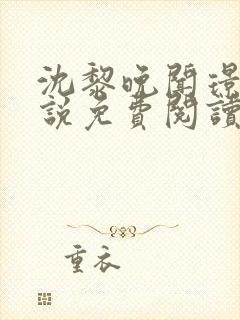 沈黎晚聞璟
說免費閱讀
重衣